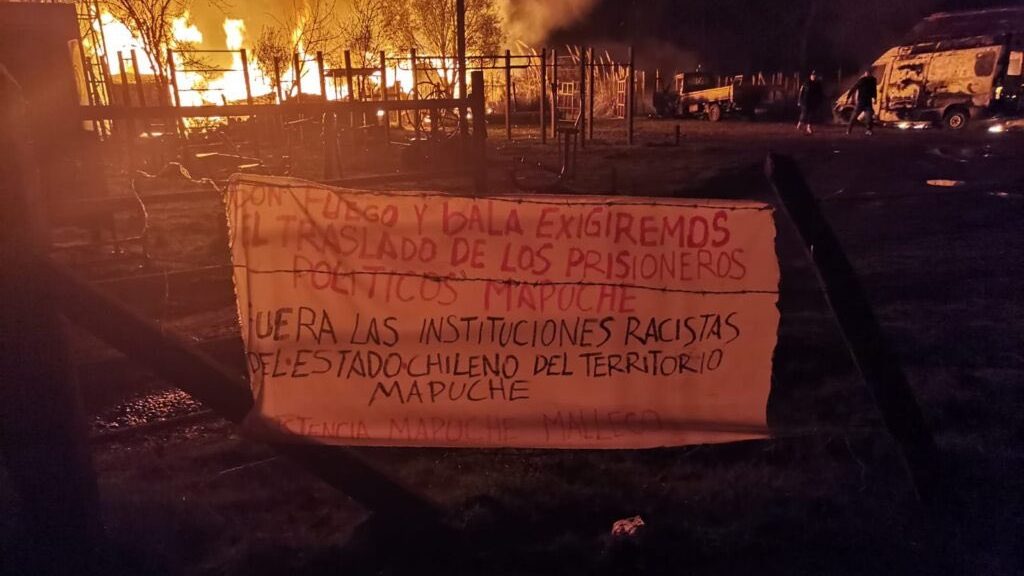 CON FUEGO Y bALA EXIGIREMOS
EL TRASLADO DE LOS PRISIONEROS
POLITICOS MAPUCHE
FUERA LAS INSTITUCIONES RACISTAS
DEL ESTADO CHILENO DEL TERRITORIO
MAPUCHE
MAPUCHE MALLECO